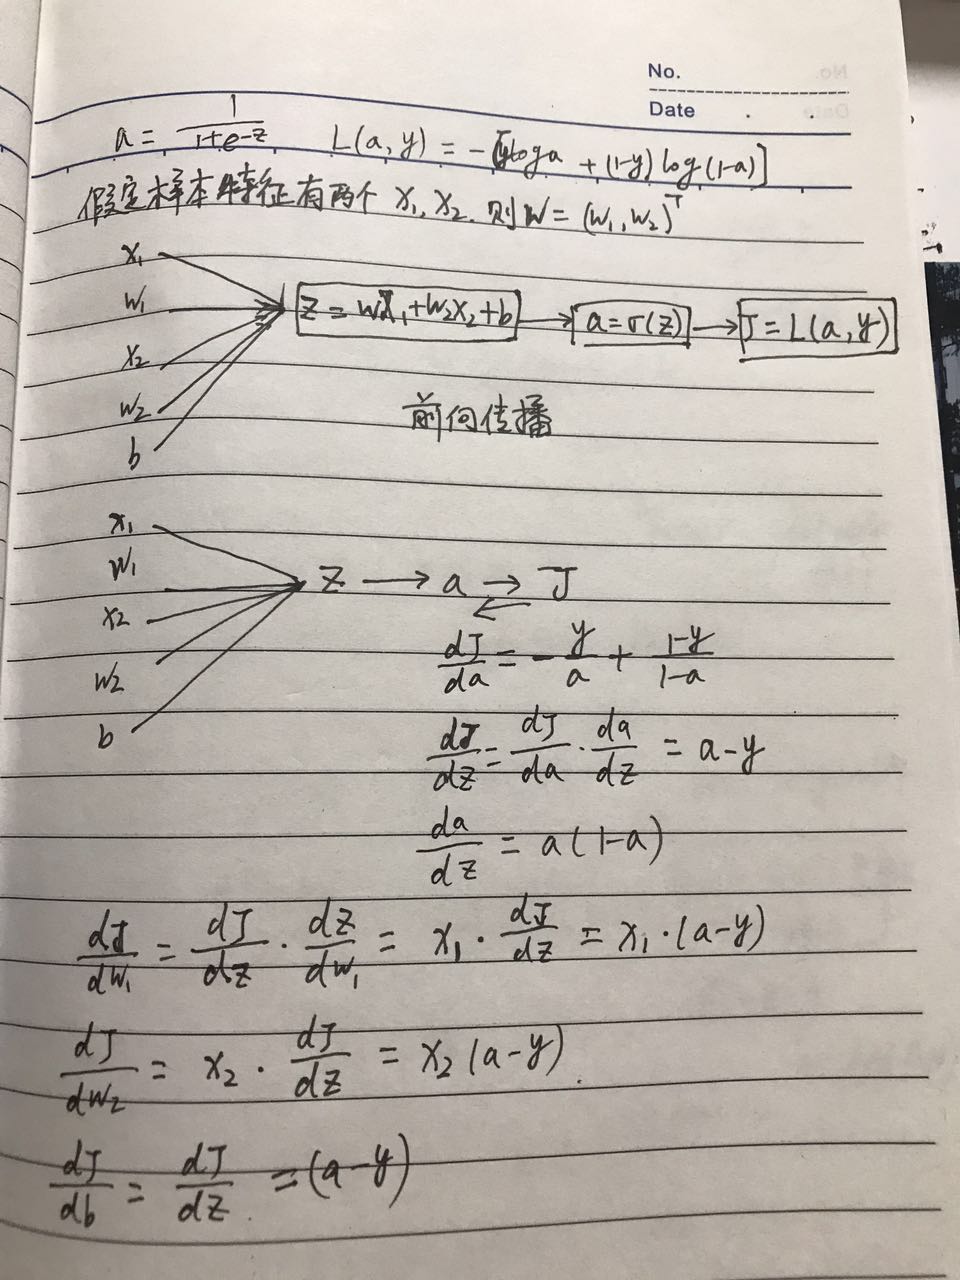 No.
Date
a = 1/(1+e-z) L(a, y) = -[yloga + (1-y) log(1-a)]
假定样本特征有两个 x₁, x₂. 则W = (w₁, w₂)ᵀ
x₁
w₁
z = wx₁+w₂x₂+b → a=σ(z) → J = L(a, y)
x₂
w₂
前向传播
b
x₁
w₁
z → a → J
←
x₂
dJ/da = -y/a + (1-y)/(1-a)
w₂
b
dJ/dz = dJ/da · da/dz = a-y
da/dz = a(1-a)
dJ/dw₁ = dJ/dz · dz/dw₁ = x₁ · dJ/dz = x₁·(a-y)
dJ/dw₂ = x₂ · dJ/dz = x₂(a-y).
dJ/db = dJ/dz = (a-y)